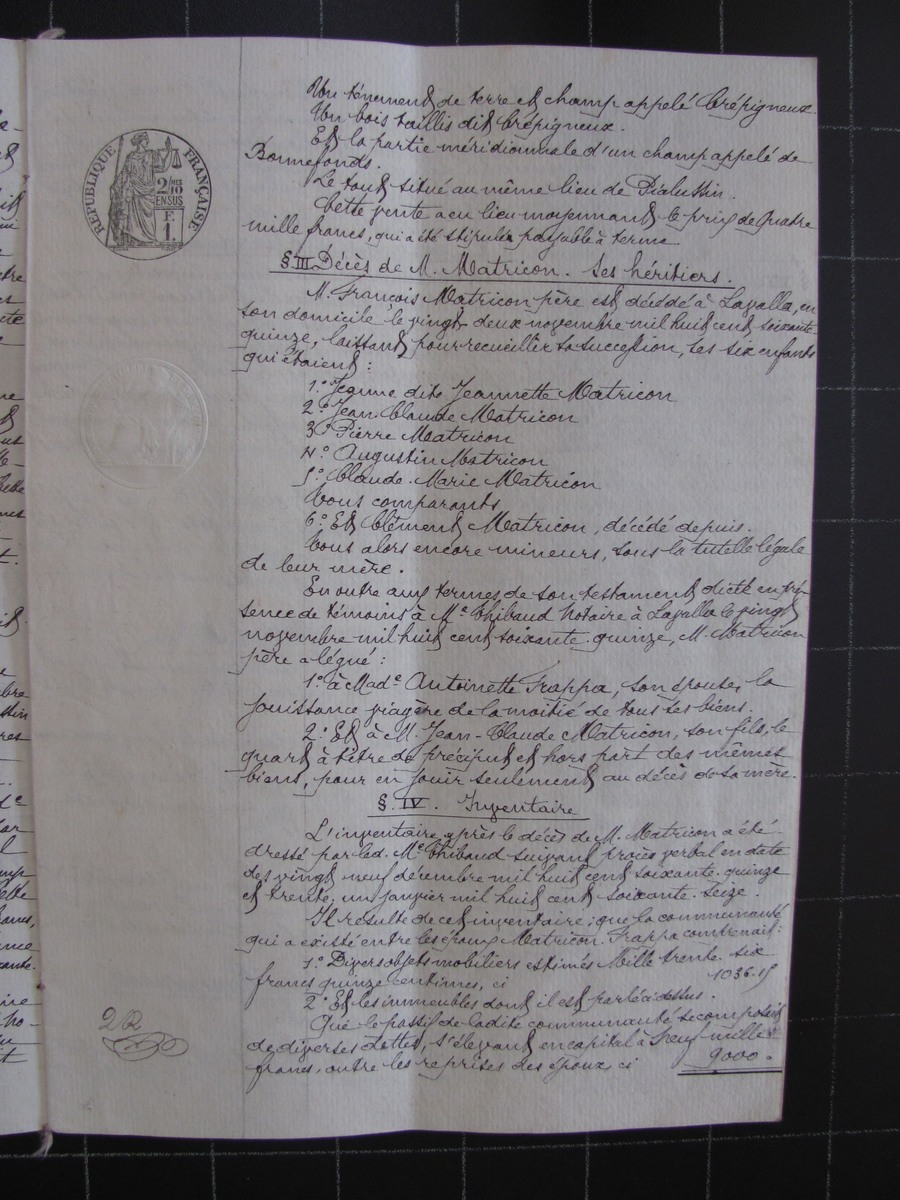 RÉPUBLIQUE FRANÇAISE
2/10 MES
EN SUS
F.
1.
Un ténement de terre et champ appelé Crépigneux.
Un bois taillis dit Crépigneux.
Et la partie méridionnale d'un champ appelé de
Bonnefonds.
Le tout situé au même lieu de Pialussin.
Cette vente a eu lieu moyennant le prix de Quatre
mille francs, qui a été stipulée payable à terme
§. III Décès de M. Matricon. Ses héritiers.
M. François Matricon père est décédé à Lavalla, en
son domicile le vingt deux novembre mil huit cent soixante-
quinze, laissant pour recueillir sa succession, ses six enfants
qui étaient :
1.° Jeanne dite Jeannette Matricon
2.° Jean-Claude Matricon
3.° Pierre Matricon
4.° Augustin Matricon
5.° Claude-Marie Matricon
Tous comparants
6.° Et Clément Matricon, décédé depuis.
Tous alors encore mineurs, sous la tutelle légale
de leur mère.
En outre aux termes de son testament dicté en pré-
sence de témoins à Me Thibaud Notaire à Lavalla le vingt
novembre mil huit cent soixante-quinze, M. Matricon
père a légué :
1.° à Made Antoinette Frappa, son épouse, la
jouissance viagère de la moitié de tous ses biens.
2.° Et à M. Jean-Claude Matricon, son fils, le
quart à titre de préciput et hors part des mêmes
biens, pour en jouir seulement au décès de sa mère.
§. IV. Inventaire
L'inventaire après le décès de M. Matricon a été
dressé par led. Me Thibaud suivant procès verbal en date
des vingt neuf décembre mil huit cent soixante-quinze
et trente-un janvier mil huit cent soixante-seize.
Il résulte de cet inventaire ; que la communauté
qui a existé entre les époux Matricon-Frappa comprenait :
1.° Divers objets mobiliers estimés Mille trente six
francs quinze centimes, ci 1036.15
2.° Et les immeubles dont il est parlé ci dessus.
Que le passif de ladite communauté se composait
de diverses dettes, s'élevant en capital à Neuf mille
francs, outre les reprises des époux ci 9000.